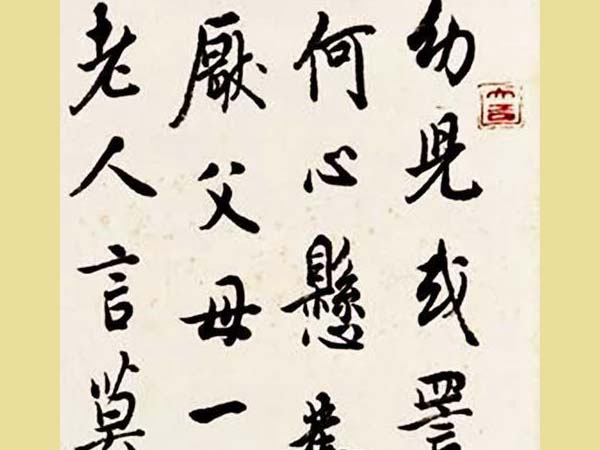 幼兒或詈
何心懸
厭父母一
老人言莫